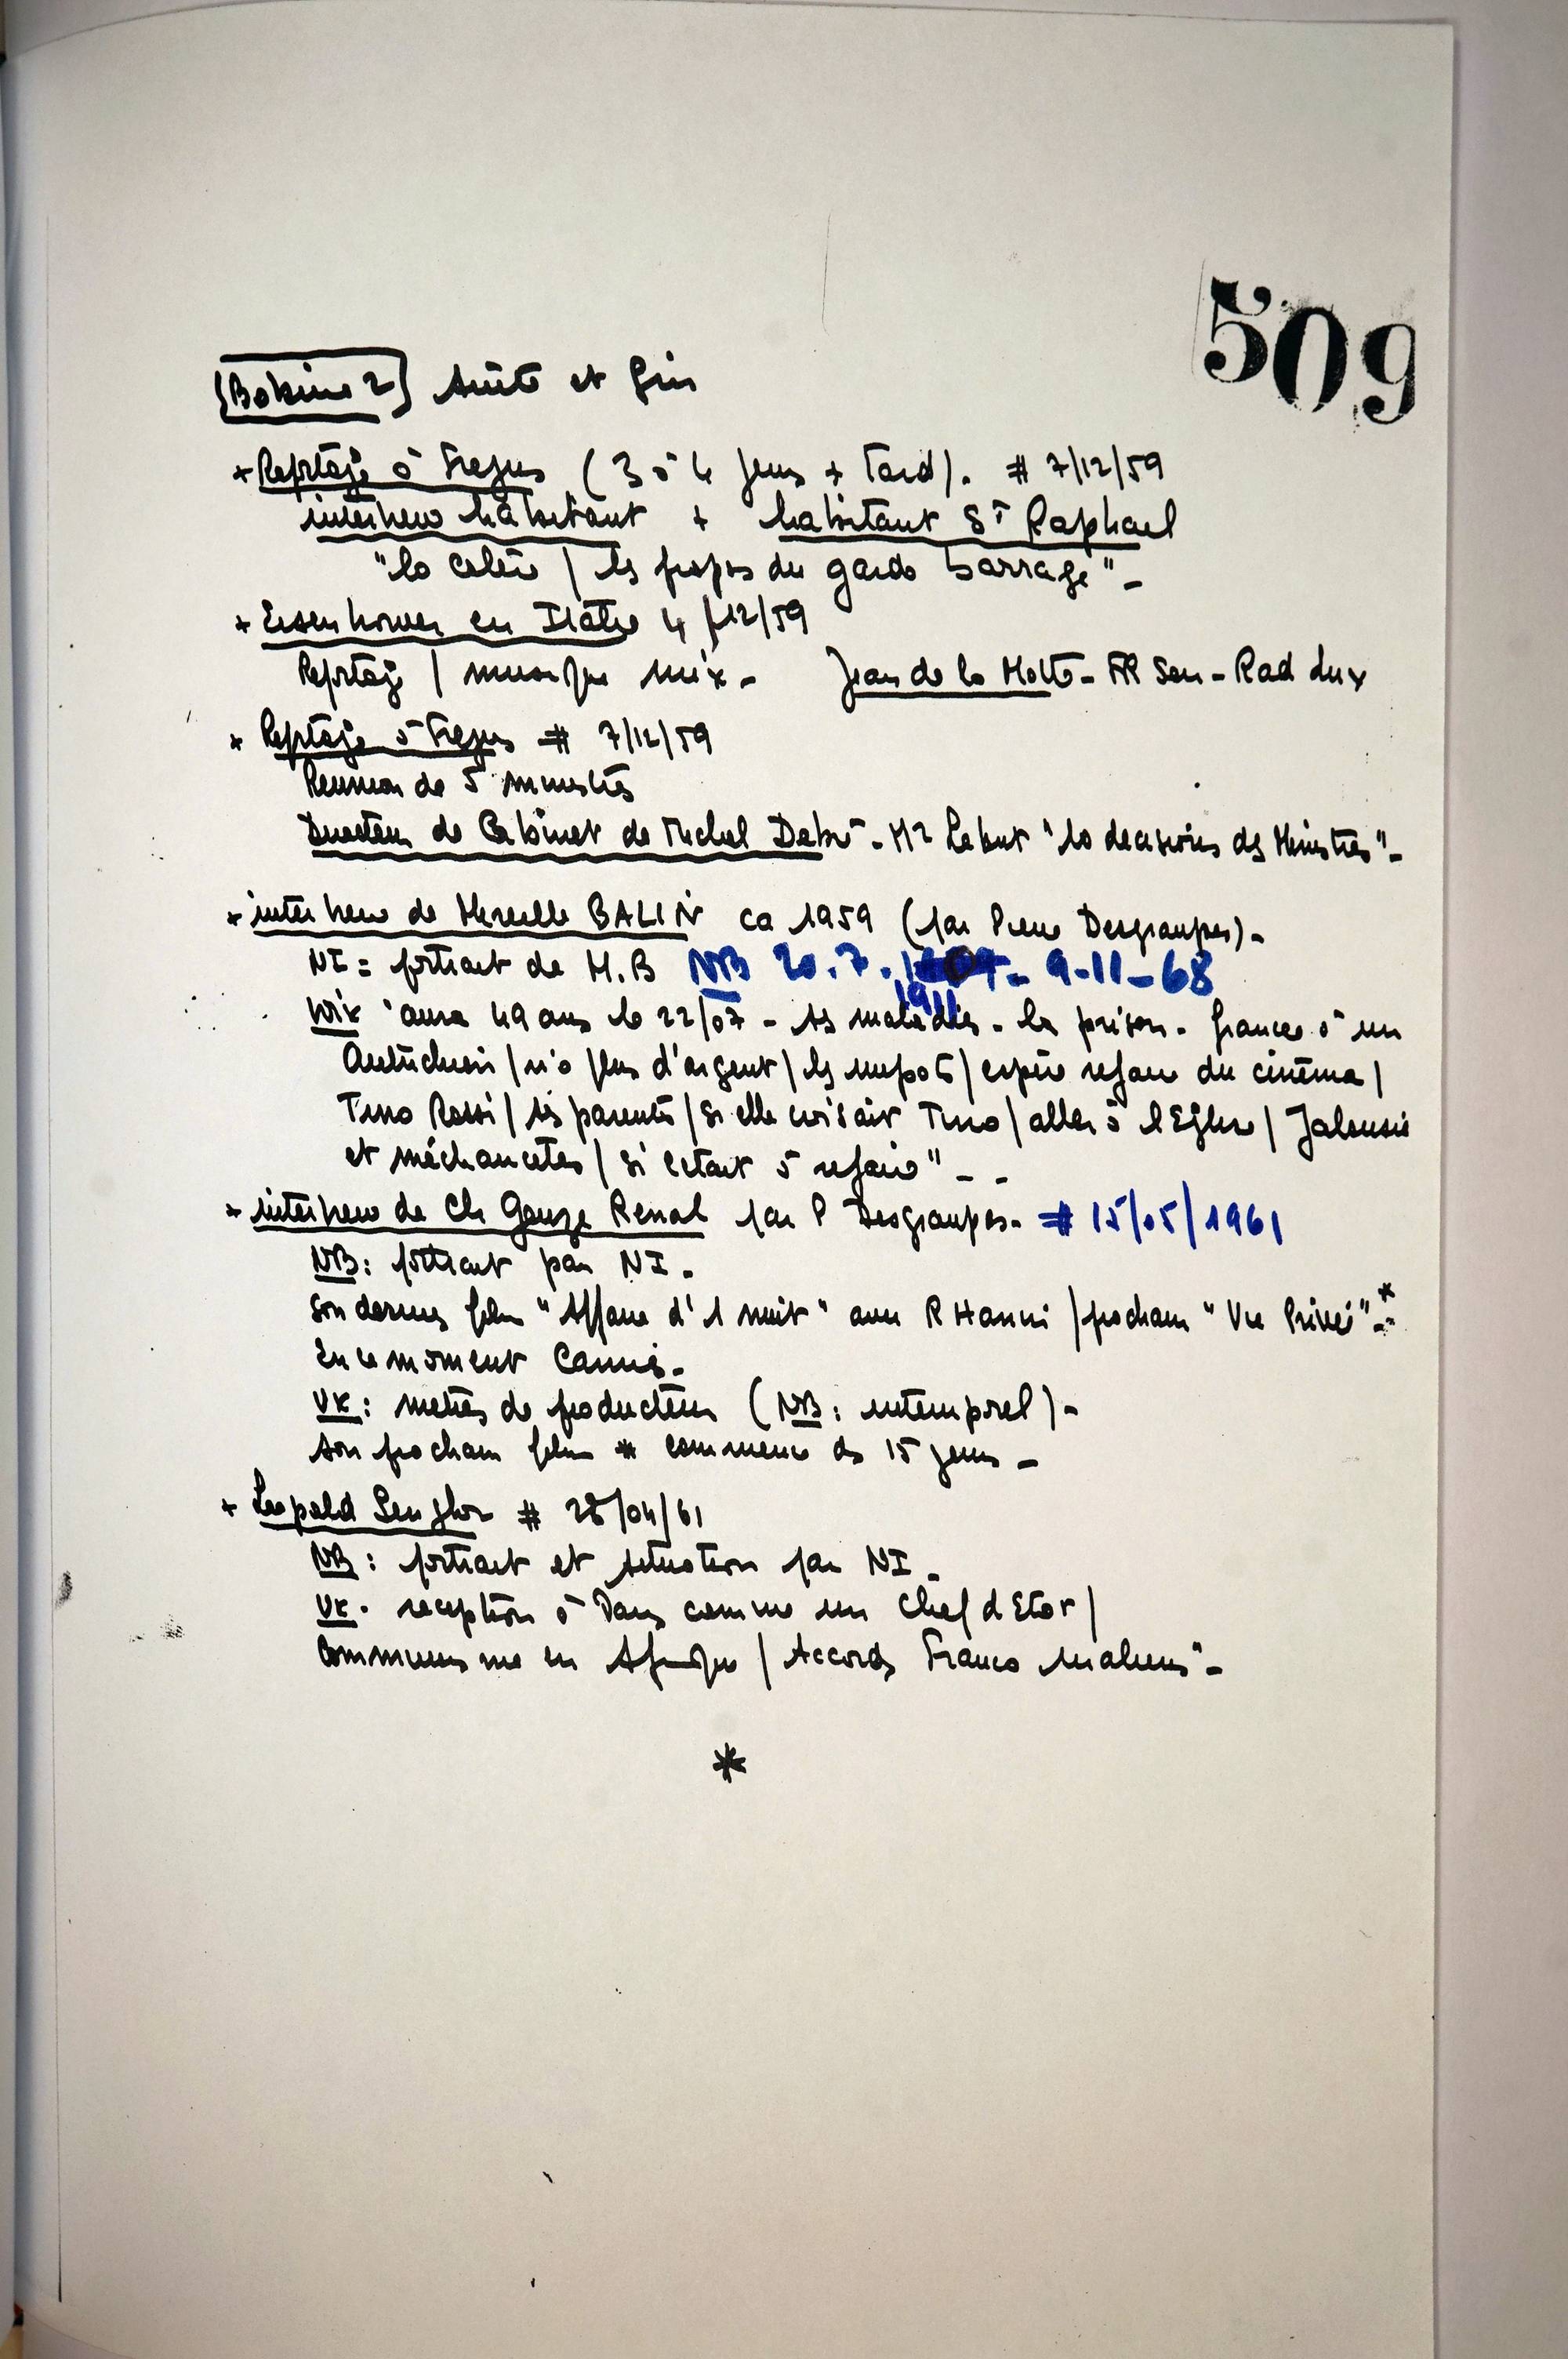 509
[Bobine 2] suite et fin
+ Reportage à Frejus (3 à 4 jours + Tard). # 7/12/59
interview habitant + habitant St Raphael
"la colère / les propos du garde barrage" -
+ Eisenhower en Italie 4/12/59
Reportage / musique mix - Jean de la Motte - - Rad Lux
+ Reportage à Frejus # 7/12/59
Reunion de 5 ministres
Directeur de Cabinet de Michel Debré - Mr "les decisions des Ministres" -
+ interview de Mireille BALIN ca 1959 (par Pierre Desgraupes) -
NI = portrait de M.B NB 20.7. 1911 - 9-11-68
"aura 49 ans le 22/07 - ses maladies - la prison - fiancee à un
Autrichien / n'a plus d'argent / les impots / espère refaire du cinéma /
Tino Rossi / ses parents / si elle croisait Tino / aller à l'Eglise / Jalousie
et méchancetés / si c'etait à refaire" - -
+ interview de Ch Gouze Renal par P Desgraupes - # 15/05/1961
NB: portrait par NI -
Son dernier film "Affaire d'1 nuit" avec R Hanin / prochain "Vie Privée" - *
En ce moment Cannes -
VK: metier de producteur (NB: intemporel) -
son prochain film * commence ds 15 jours -
+ Leopold Senghor # 28/04/61
NB: portrait et situation par NI -
VK. reception à Paris comme un Chef d'Etat /
communisme en Afrique / Accords Franco maliens" -
*